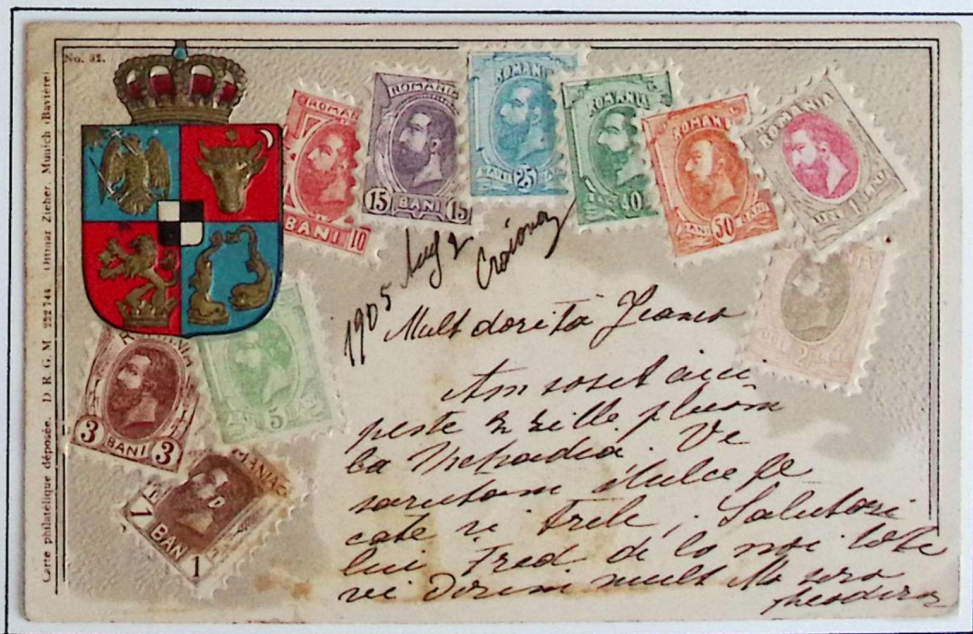 No. 31.
Carte philatélique déposée. D. R. G. M. 222 744. Ottmar Zieher, Munich (Bavière)
ROMAN
BANI 10
ROMANIA
15 BANI 15
ROMANIA
25
ROMANIA
40
ROMANIA
BANI 50
ROMANIA
3 BANI 3
5
MANIA
1 BAN 1
1905 Aug 2
Craiova
Mult dorita
Am sosit aici
peste 2 zille plecam
la Mehadia. Ve
sarutam dulce pe
cate si trele, Salutari
lui Fred de la noi tote
ve dorim mult
Theodora